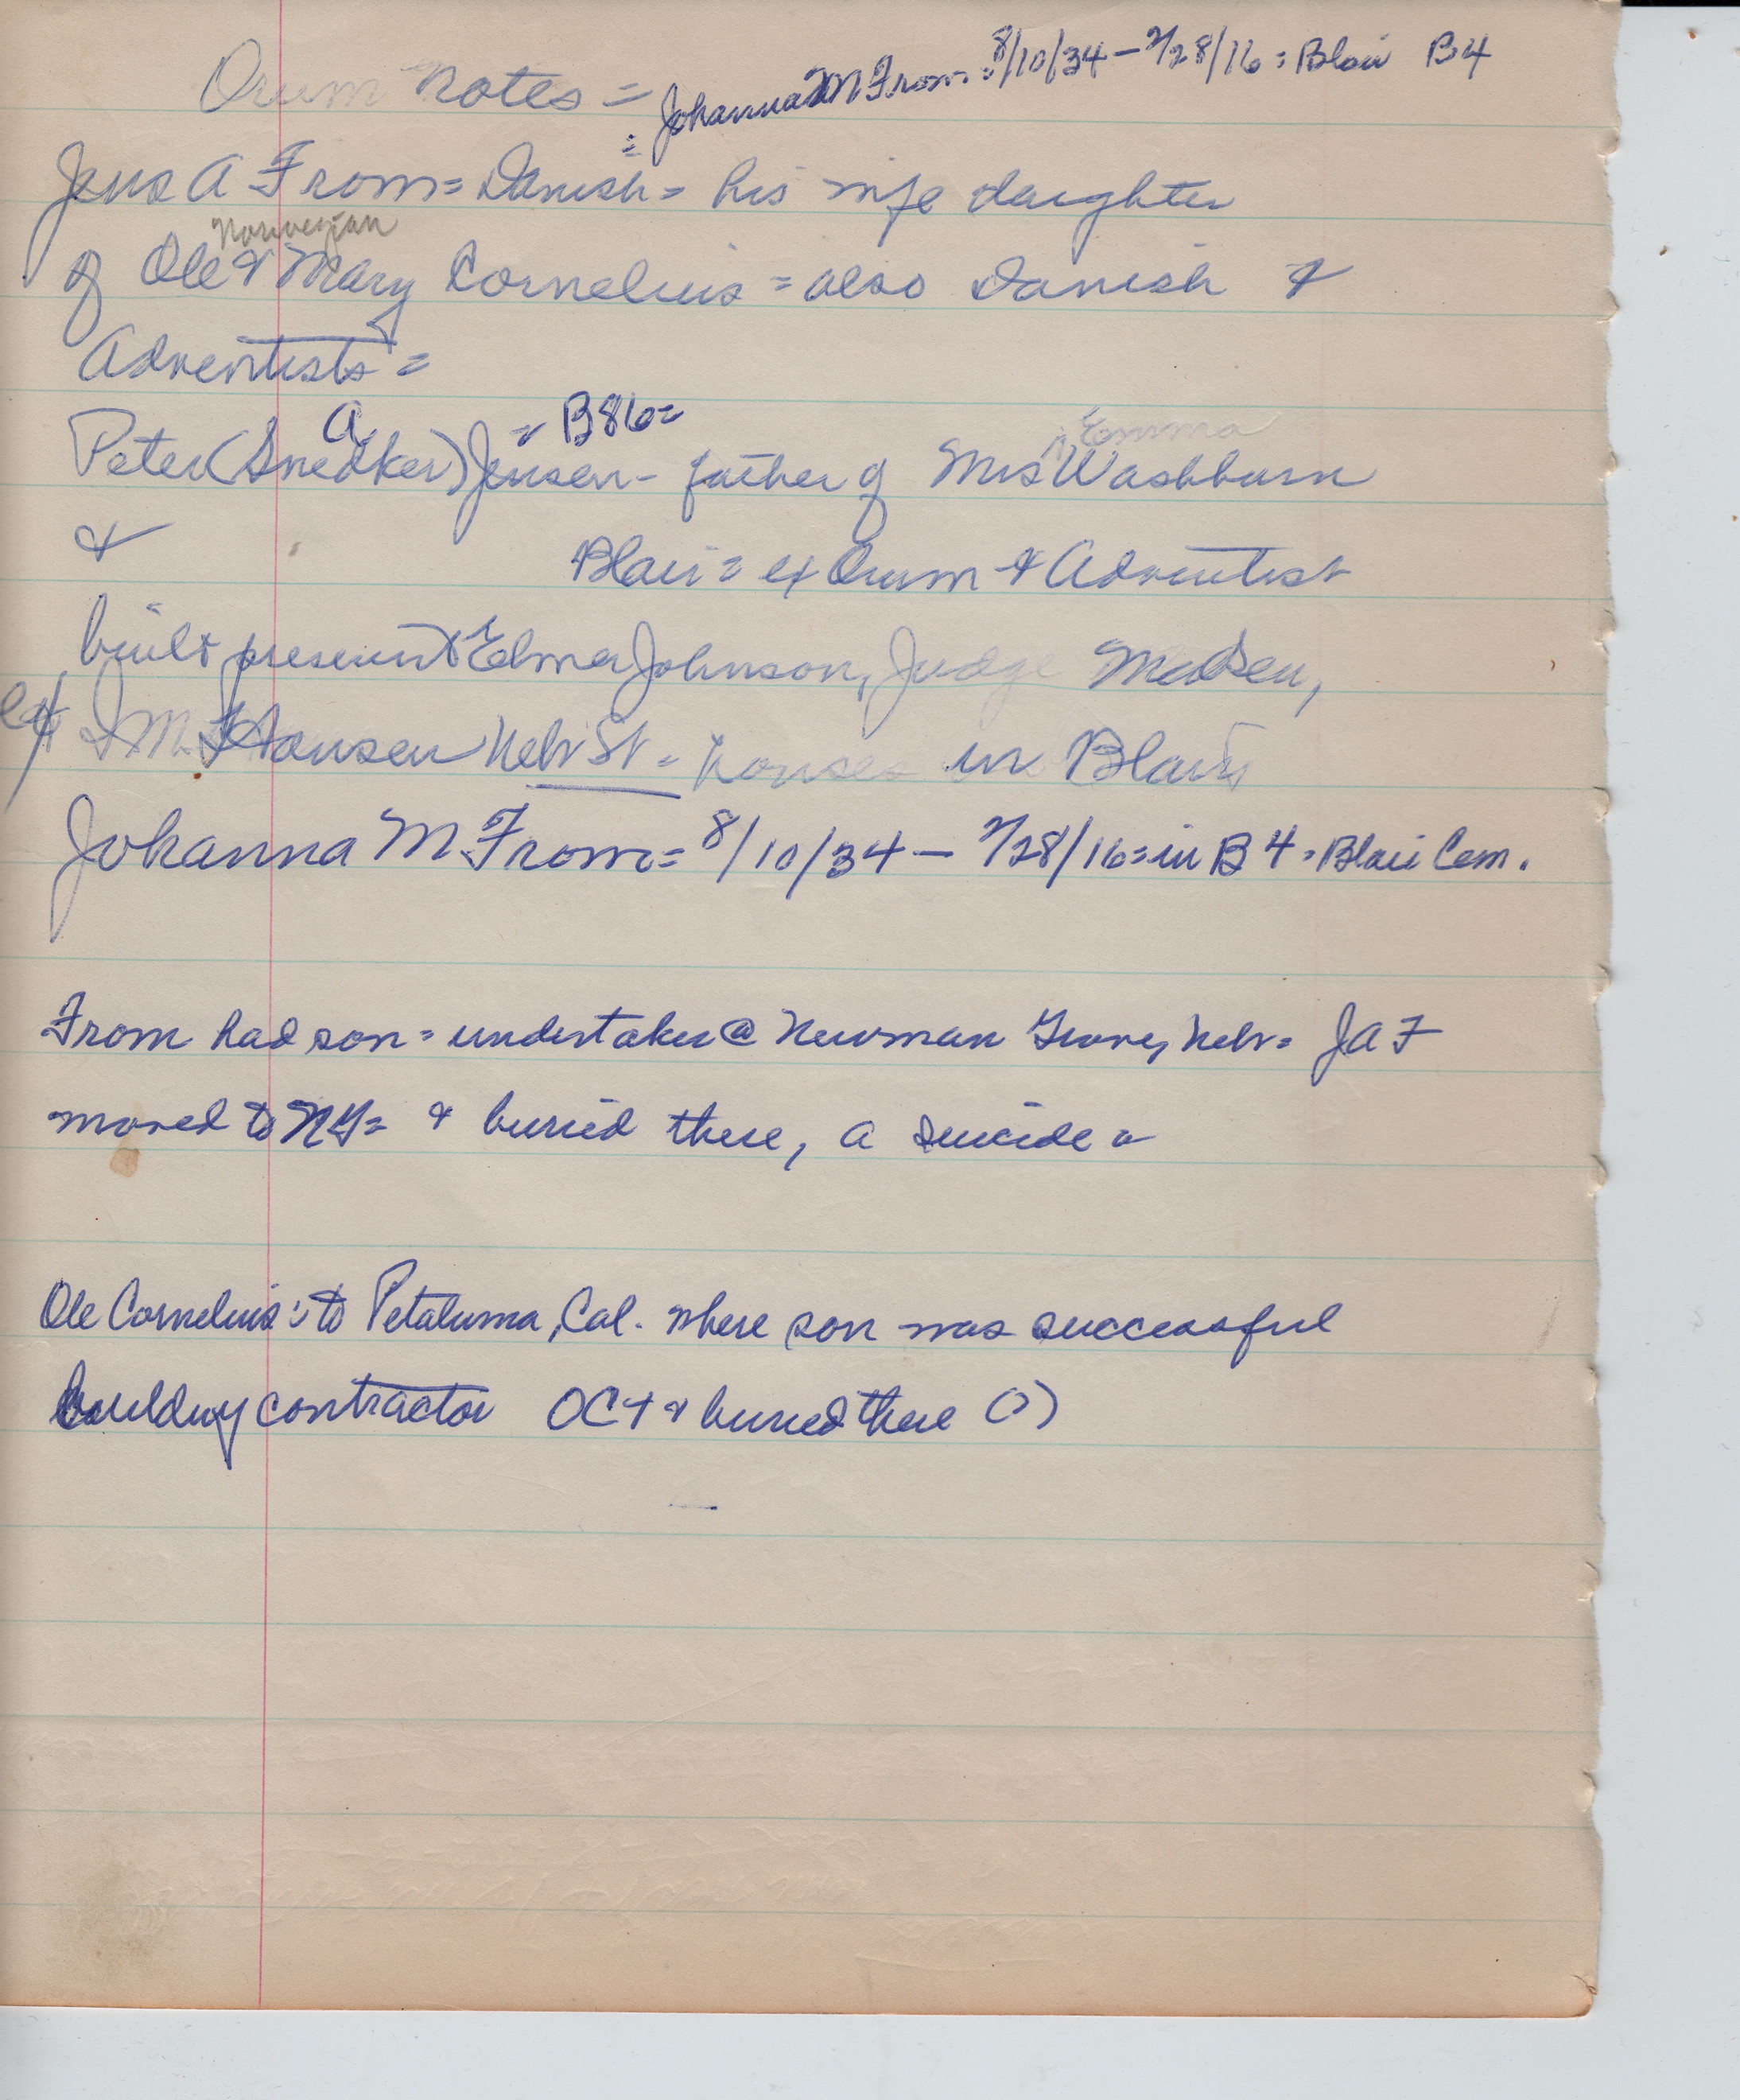 Orum Notes =
: Johanna M From = 8/10/34 – 2/28/16 = Blair B4
Jens A From = Danish = his wife daughter
Norwegian
of Ole & Mary Cornelius = also Danish &
Adventists =
a = B86 =
Emma
Peter (Snedker) Jensen - father of Mrs Washburn
&
Blair = ex Orum & Adventist
built present Elmer Johnson, Judge Madsen,
ex I M Hansen Nebr St - houses in Blair
Johanna M From = 8/10/34 – 2/28/16 = in B 4 = Blair Cem.
From had son = undertaker @ Newman Grove, Nebr = JAF
moved to NG = & buried there, a suicide =
Ole Cornelius : to Petaluma, Cal. where son was successful
building contractor OC + & buried there (?)